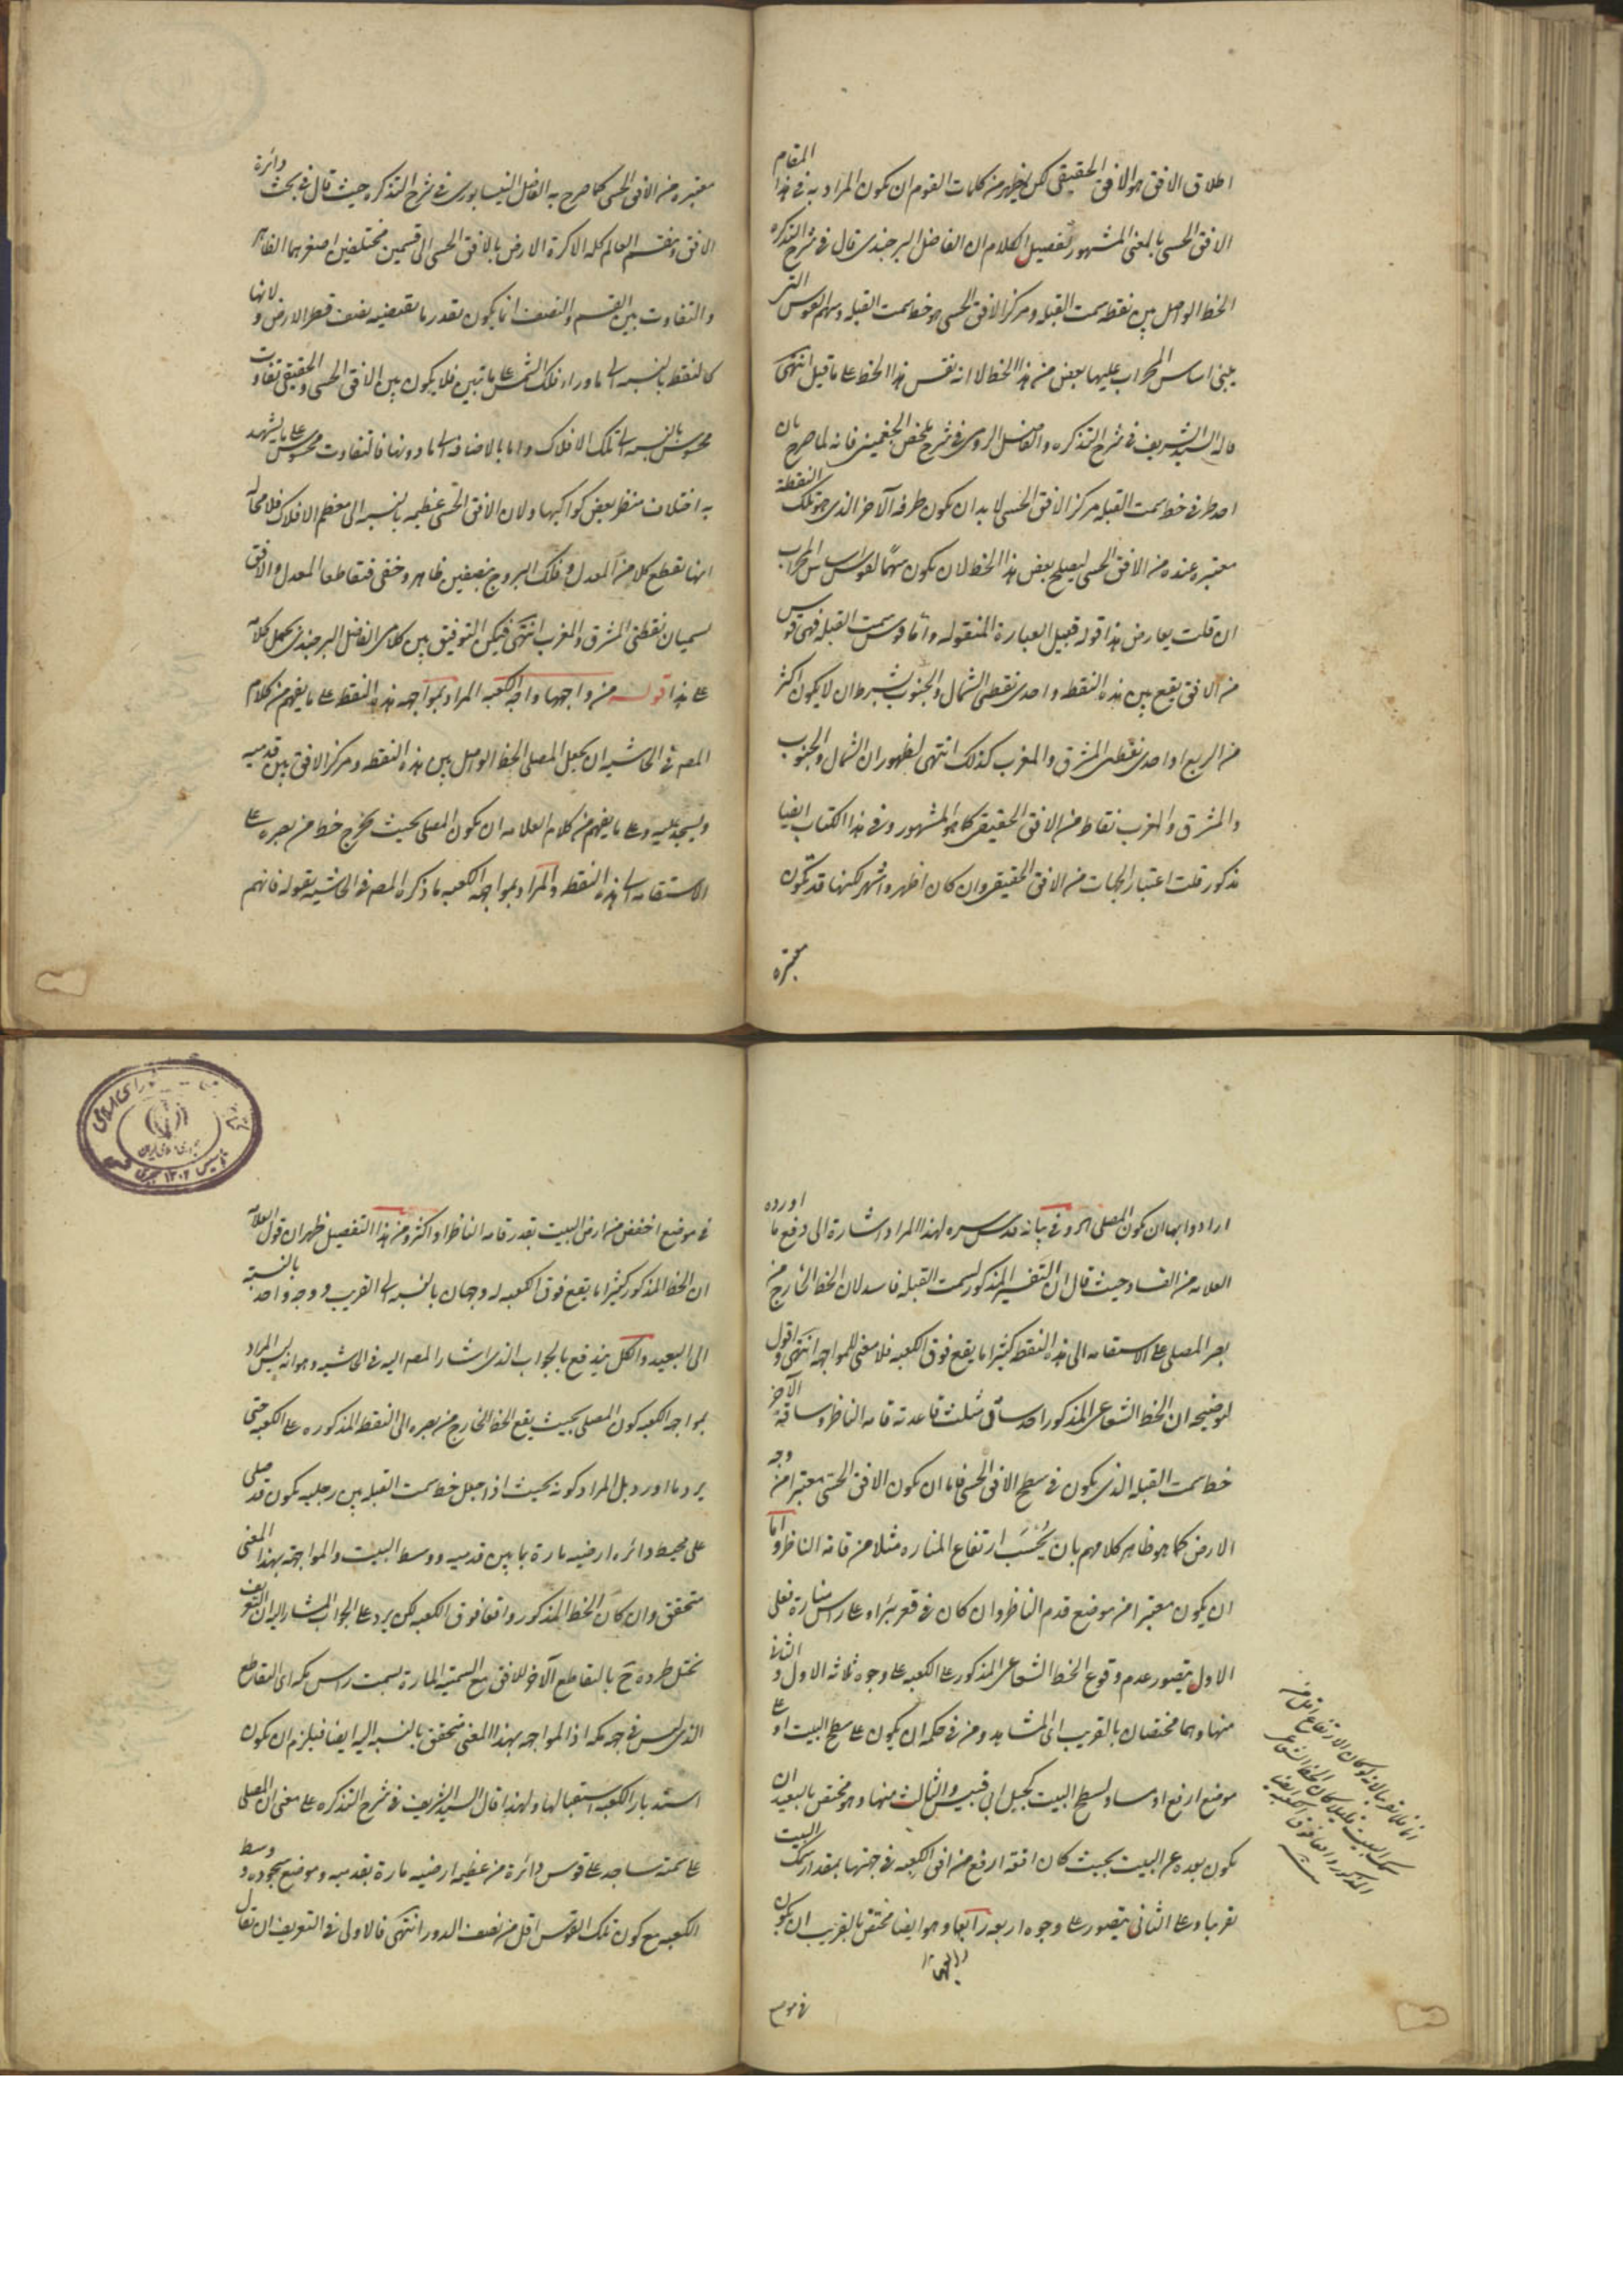 اطلاق الافق هو الافق الحقيقى لكن يظهر من كلمات القوم ان يكون المراد به فى هذا المقام
الافق الحسى بالمعنى المشهور تفصيل الكلام ان الفاضل البرجندى قال فى شرح التذكره
الخط الواصل بين نقطه سمت القبله ومركز الافق الحسى هو خط سمت القبله وسهم القوس التى
يبنى اساس المحراب عليها بعض من هذا الخط لا انه نفس هذا الخط على ما قيل انتهى
قاله السيد الشريف فى شرح التذكره والفاضل الرومى فى شرح ملخص الجغمينى فانه لما صرح بان
احد طرفى خط سمت القبله مركز الافق الحسى لا بد ان يكون طرفه الآخر الذى هو تلك النقطة
معتبره عنده من الافق الحسى ليصلح بعض هذا الخط لان يكون سهمًا لقوس اساس المحراب
ان قلت يعارض هذا قوله قبيل العبارة المنقوله واما قوس سمت القبله فهى قوس
من الافق يقع بين هذه النقطه واحدى نقطتى الشمال والجنوب بشرط ان لا يكون اكثر
من الربع او احدى نقطتى المشرق والمغرب كذلك انتهى لظهور ان الشمال والجنوب
والمشرق والمغرب نقاط من الافق الحقيقى كما هو المشهور وفى هذا الكتاب ايضا
مذكور قلت اعتبار الجهات من الافق الحقيقى وان كان اظهر واشهر لكنها قد تكون
معتبره
معتبره من الافق الحسى كما صرح به الفاضل النيسابورى فى شرح التذكره حيث قال فى بحث دائرة
الافق وينقسم العالم كله الا كرة الارض بالافق الحسى الى قسمين مختلفين اصغرهما الظاهر
والتفاوت بين القسم والنصف انما يكون بقدر ما يقتضيه نصف قطر الارض ولانها
كالنقط بالنسبه الى ما وراء فلك الشمس على ما تبين فلا يكون بين الافق الحسى والحقيقى تفاوت
محسوس بالنسبه الى تلك الافلاك واما بالاضافه الى ما دونها فالتفاوت محسوس على ما يشهد
به اختلاف منظر بعض كواكبها ولان الافق الحسى عظيمه بالنسبه الى معظم الافلاك فلا محاله
انها تقطع كلا من المعدل وفلك البروج بنصفين ظاهر وخفى فتقاطعا المعدل والافق
يسميان نقطتى المشرق والمغرب انتهى فيمكن التوفيق بين كلامى الفاضل البرجندى بحمل كلامه
على هذا قوله من واجهها واجه الكعبه المراد بمواجهه هذه النقط على ما يفهم من كلام
المصه فى الحاشيه ان يجعل المصلى الخط الواصل بين هذه النقطه ومركز الافق بين قدميه
ويسجد عليه وعلى ما يفهم من كلام العلامه ان يكون المصلى بحيث يخرج خط من بصره على
الاستقامه الى هذه النقطه والمراد بمواجهه الكعبه ما ذكره المصه فى الحاشيه بقوله فانهم
ارادوا بها ان يكون المصلى اه وفى بيانه قدس سره لهذا المراد اشارة الى دفع ما اورده
العلامه من الفساد حيث قال ان التفسير المذكور لسمت القبله فاسد لان الخط الخارج من
بصر المصلى على الاستقامه الى هذه النقطه كثيرا ما يقع فوق الكعبه فلا معنى للمواجهه انتهى واقول
توضيحه ان الخط الشعاعى المذكور احد ساقى مثلث قاعدته قامه الناظر وساقه الآخر
خط سمت القبله الذى يكون فى سطح الافق الحسى فاما ان يكون الافق الحسى معتبرا من وجه
الارض كما هو ظاهر كلامهم بان يُحْسَبَ ارتفاع المناره مثلا من قامة الناظر واما
ان يكون معتبرا من موضع قدم الناظر وان كان فى قعر بئر او على راس مناره فعلى
الاول يتصور عدم وقوع الخط الشعاعى المذكور على الكعبه على وجوه ثلاثه الاول والثانى
منها وهما مختصان بالقريب اى المشاهد ومن فى حكمه ان يكون على سطح البيت او على
موضع ارفع او مساو لسطح البيت كجبل ابى قبيس والثالث منها وهو مختص بالبعيد ان
يكون بعده عن البيت بحيث كان افقه ارفع من افق الكعبه فى جهتها بمقدار سمك البيت
تقريبا وعلى الثانى يتصور على وجوه اربعه رابعها وهو ايضا مختص بالقريب ان يكون
انما قلنا تقريبا لانه لو كان الارتفاع اقل من
سمك البيت قليلا كان الخط الشعاعى
المذكور واقعا فوق الكعبه ايضا
فى موضع
فى موضع اخفض من ارض البيت بقدر قامه الناظر او اكثر ومن هذا التفصيل ظهر ان قول العلامه
ان الخط المذكور كثيرا ما يقع فوق الكعبه له وجهان بالنسبه الى القريب ووجه واحد بالنسبة
الى البعيد والكل يندفع بالجواب الذى اشار المصه اليه فى الحاشيه وهو انه ليس المراد
بمواجهه الكعبه كون المصلى بحيث يقع الخط الخارج من بصره الى النقطه المذكوره على الكعبه حتى
يرد ما اورد بل المراد كونه بحيث اذا جعل خط سمت القبله بين رجليه يكون قد صلى
على محيط دائره ارضيه مارة بما بين قدميه ووسط البيت والمواجهه بهذا المعنى
متحقق وان كان الخط المذكور واقعا فوق الكعبه لكن يرد على الجواب المشار اليه ان التعريف
يختل طرده ح بالتقاطع الآخر للافق مع السمتيه المارة بسمت راس مكه اى التقاطع
الذى ليس فى جهه مكه اذ المواجهه بهذا المعنى متحقق بالنسبه اليه ايضا فيلزم ان يكون
استدبار الكعبه استقبالها ولهذا قال السيد الشريف فى شرح التذكره على معنى ان المصلى
على سمته ساجد على قوس دائرة من عظيمه ارضيه مارة بقدميه وموضع سجوده ووسط
الكعبه مع كون تلك القوس اقل من نصف الدور انتهى فالاولى فى التعريف ان يقال